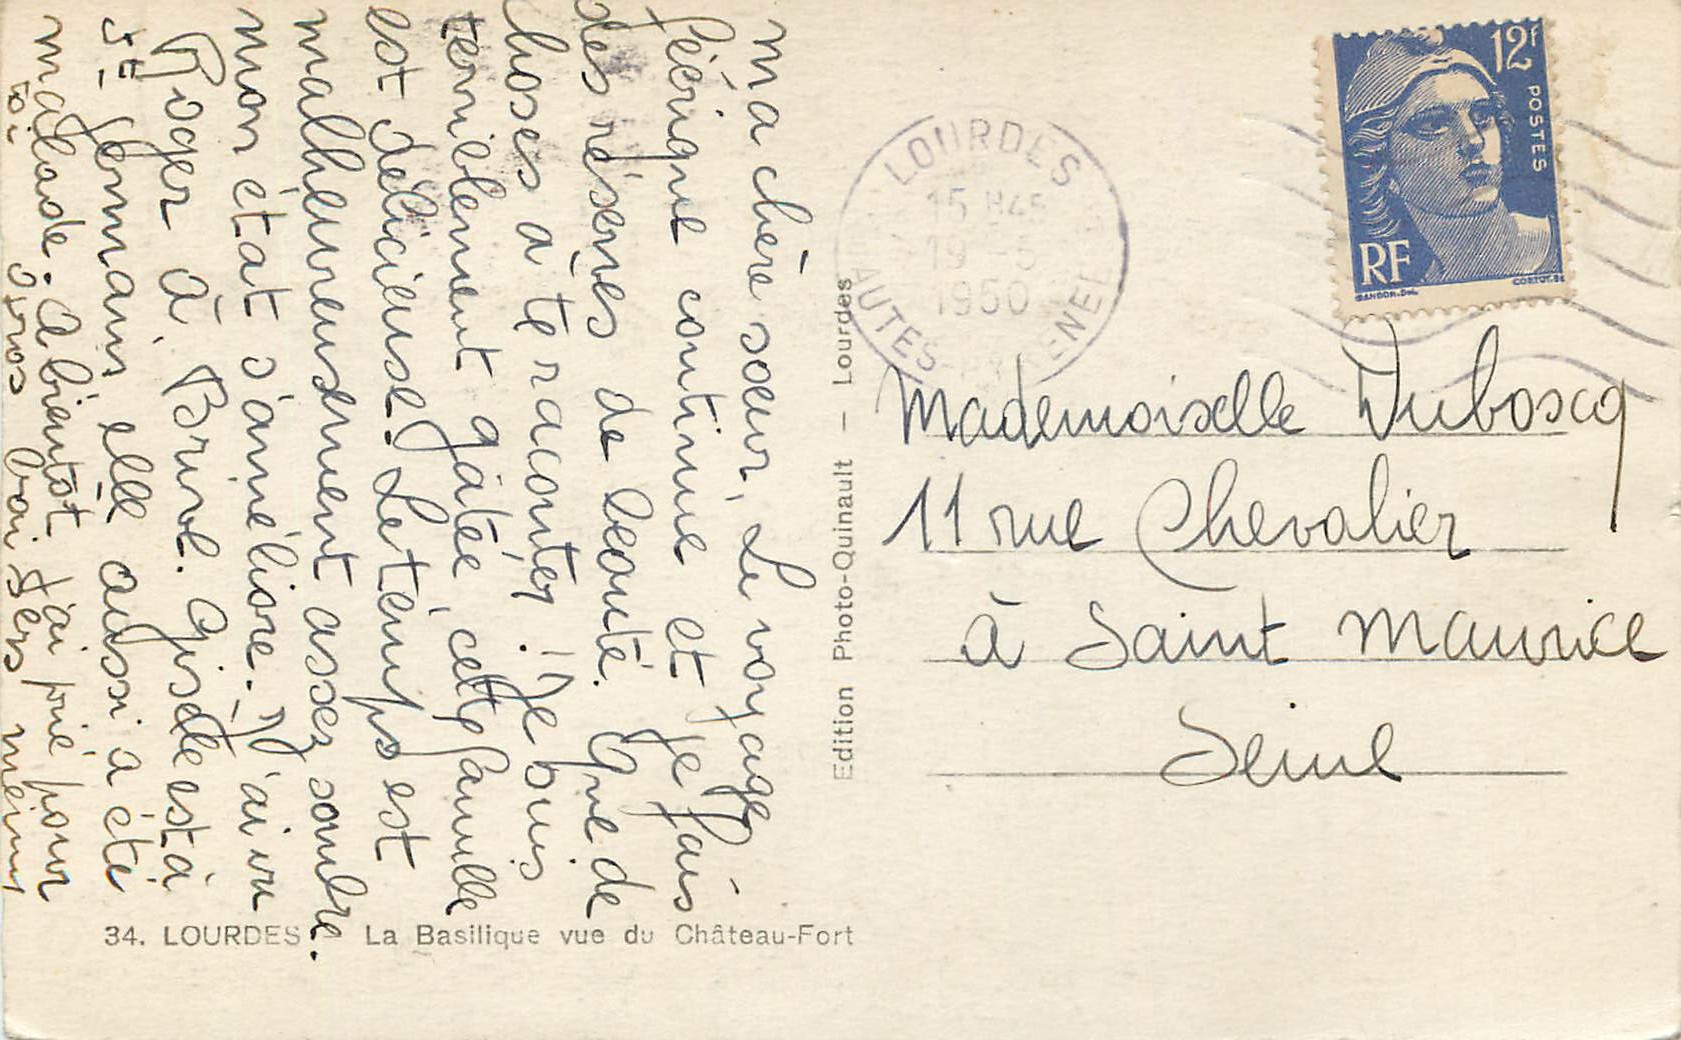 Ma chère soeur, Le voyage
féérique continue et je fais
des réserves de beauté. Que de
choses à te raconter ! Je suis
terriblement gâtée, cette famille
est délicieuse. Le temps est
malheureusement assez sombre.
mon état s'améliore. J'ai vu
Roger à Brive. Gisèle est à
St Germain elle aussi a été
malade. A bientôt j'ai prié pour
toi
gros baisers
LOURDES
15 H45
19 - 5
1950
HAUTES-PYRENEES
12f
POSTES
RF
GANDON.DEL.
CORTOT.SC
Mademoiselle Duboscq
11 rue Chevalier
à Saint Maurice
Seine
Edition Photo-Quinault - Lourdes
34. LOURDES - La Basilique vue du Château-Fort